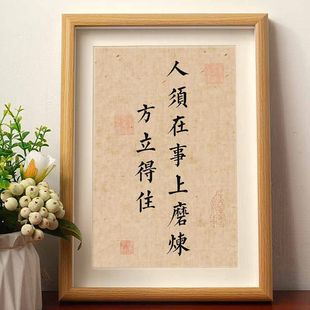 人須在事上磨煉
方立得住